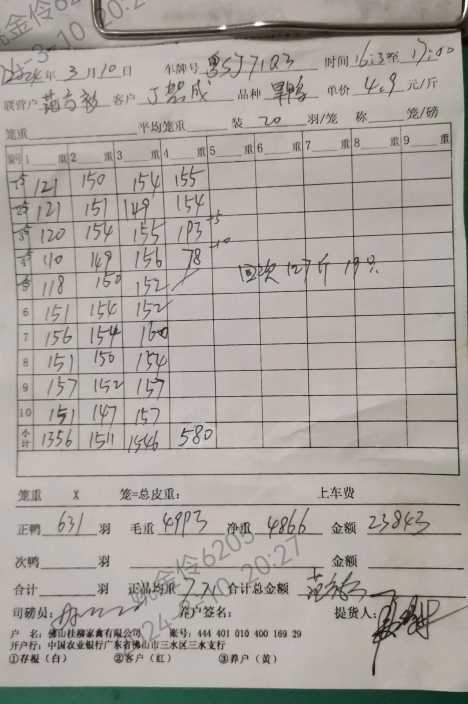 2024年 3月10日 车牌号 粤SJ71Q3 时间 16:3 至 17:00
联营户 客户 丁贺成 品种 单价 4.9 元/斤
笼重 平均笼重 装 20 羽/笼 称 笼/磅
编号 1 重 2 重 3 重 4 重 5 重 6 重 7 重 8 重 9 重
121 150 154 155
121 151 149 154
120 154 155 193
110 149 156 78 -10
118 150 152 回次 127斤 19只
6 151 154 152
7 156 154 160
8 151 150 154
9 157 152 157
10 151 147 157
小计 1356 1511 1546 580
笼重 X 笼=总皮重: 上车费
正鸭 631 羽 毛重 4993 净重 4866 金额 23843
次鸭 羽 金额
合计 羽 正品均重 7.71 合计总金额
司磅员: 养户签名: 提货人:
户 名: 佛山桂柳家禽有限公司 账号: 444 401 010 400 169 29
开户行: 中国农业银行广东省佛山市三水区三水支行
①存根(白) ②客户(红) ③养户(黄)
金伶6205
2024-3-10 20:27